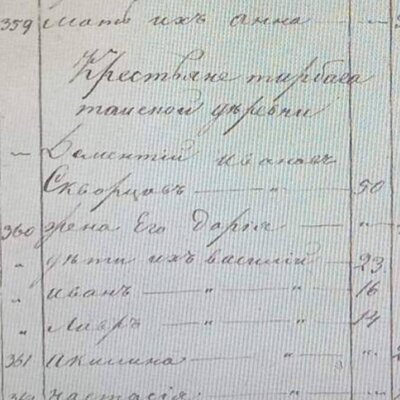 359 мать ихъ анна — "
Крестьяне тирбага
танской деревни
— Дементій ивановъ
Скворцовъ — " — 50
360 жена Его дарія — "
" дѣти ихъ василій — 23
" иванъ — " — 16
" Лавръ — " — 14
361 акилина — " "
настасія